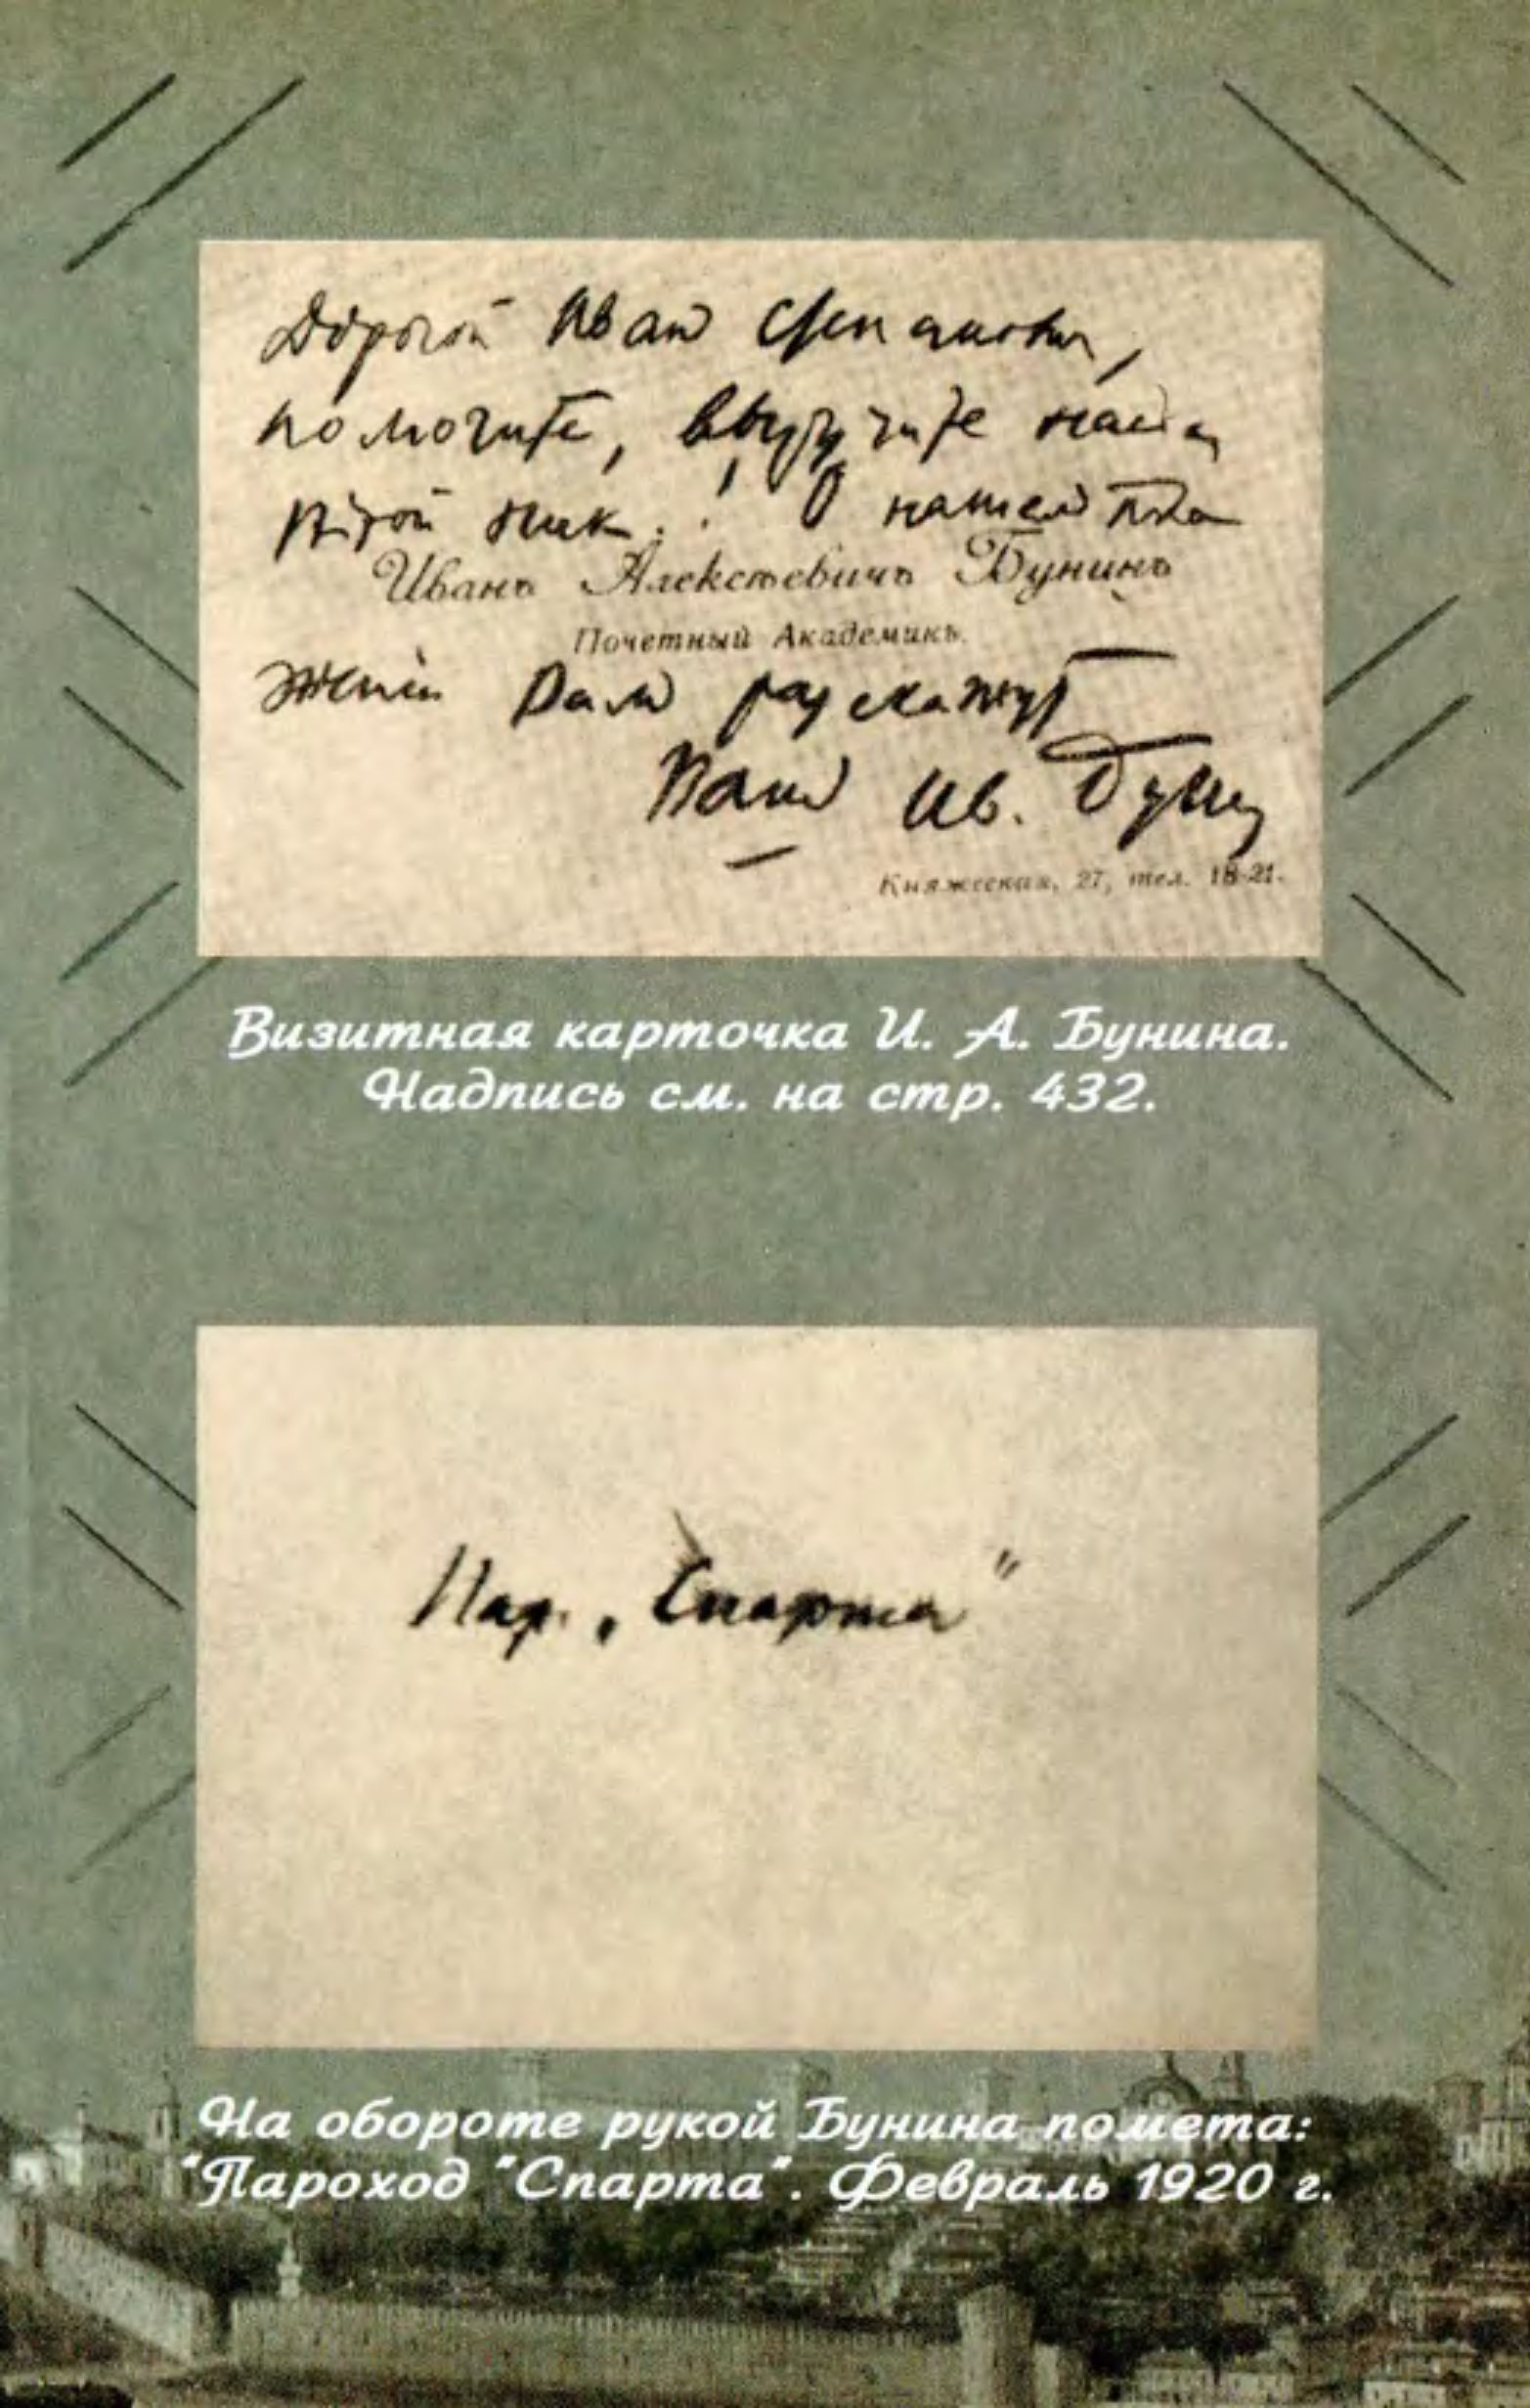 Дорогой Иванъ Степанович,
помогите, выручите
! О нашемъ поло
Иванъ Алексѣевичъ Бунинъ
Почетный Академикъ.
женiи Вамъ разскажутъ
Вашъ Ив. Бунин
Княжеская, 27, тел. 18-21.
Визитная карточка И. А. Бунина.
Надпись см. на стр. 432.
Пар. „Спарта"
На обороте рукой Бунина помета:
"Пароход "Спарта". Февраль 1920 г.